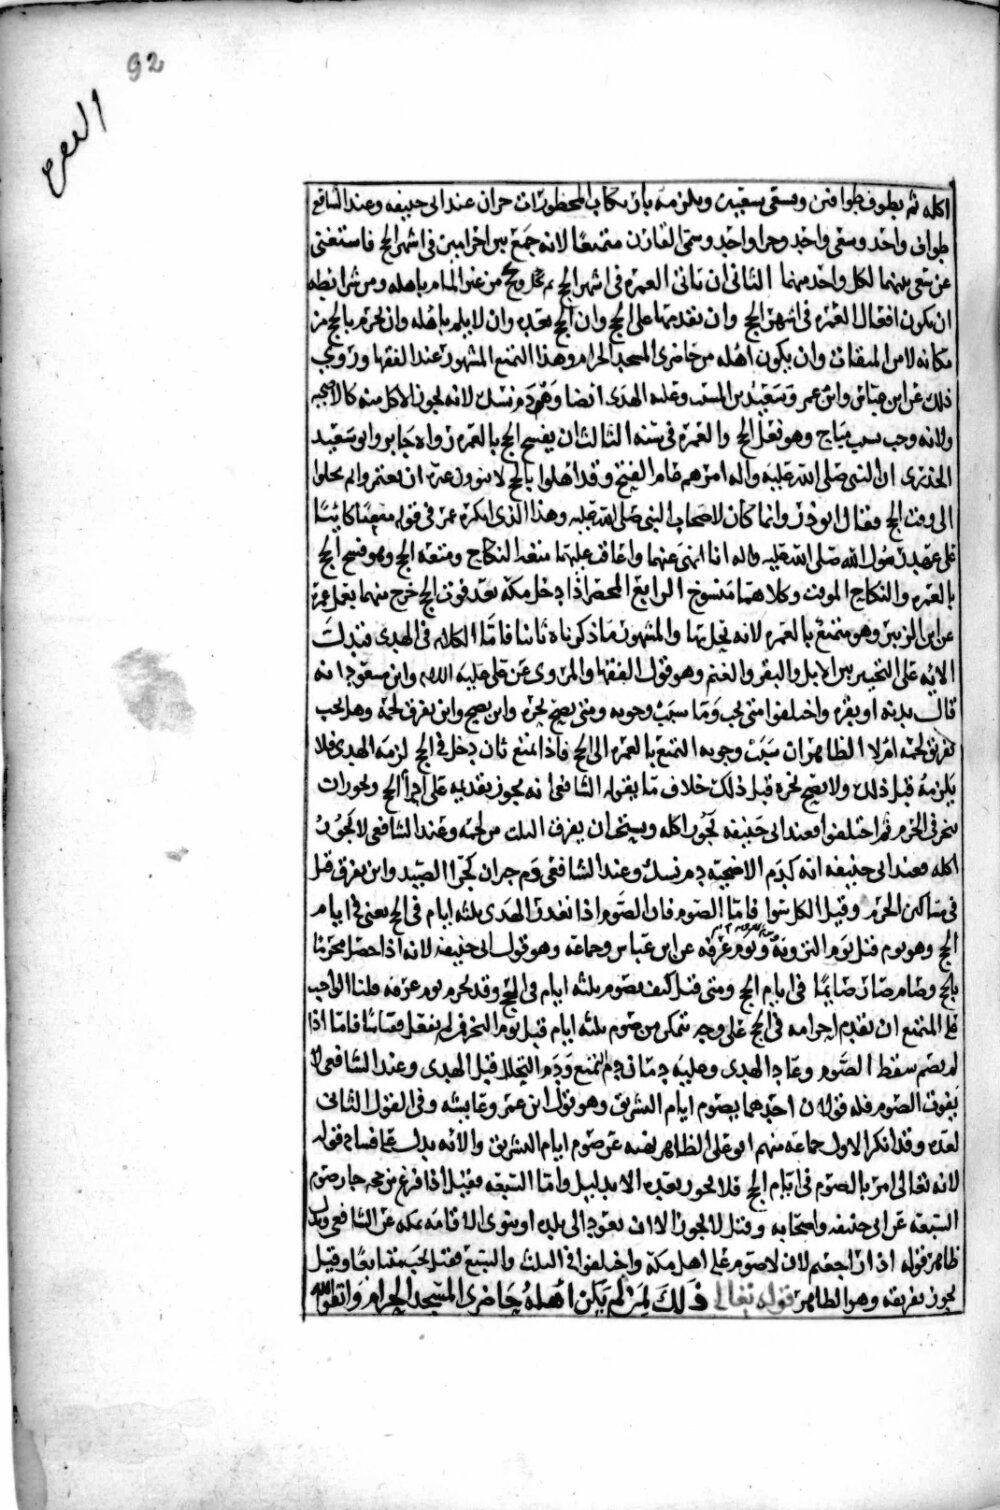 92
اكله ثم يطوف طوافين ويسعى سعيين ويلزمه بارتكاب المحظورات جزاان عند ابي حنيفه وعند الشافعي
طواف واحد وسعى واحد وجزاء واحد وسمى القارن متمتعا لانه جمع بين احرامين في اشهر الحج فاستغنى
عن سعي بينهما لكل واحد منهما الثاني ان ياتي العمره في اشهر الحج ثم يحل ويحج من غير المام باهله ومن شرائطه
ان يكون افعال العمره في اشهر الحج وان تقدمها على الحج وان الحج بعده وان لا يلم باهله وان يحرم بالحج من
مكانه لا من الميقات وان يكون اهله من حاضري المسجد الحرام وهذا التمتع المشهور عند الفقها وروي
ذلك عن ابن عباس وابن عمر وسعيد بن المسيب وعليه الهدى ايضا وهو دم نسك لانه يجوز الاكل منه كالاضحيه
ولانه وجب بسبب مباح وهو نقل الحج والعمره في سنه الثالث ان يفسخ الحج بالعمره رواه جابر وابو سعيد
الخدري ان النبي صلى الله عليه واله امرهم عام الفتح وقد اهلوا بالحج لا ينوون غيره ان يعتمروا ثم يحلوا
الى وقت الحج فقال ابو ذر وانما كان لاصحاب النبي صلى الله عليه وهذا الذي انكره عمر في قوله متعتان كانتا
على عهد رسول الله صلى الله عليه واله انا انهى عنهما واعاقب عليهما متعه النكاح ومتعه الحج وهو فسخ الحج
بالعمره والنكاح الموقت وكلاهما منسوخ الرابع المحصر اذا دخل مكه بعد فوت الحج خرج منهما بعمل عمره
عن ابن الزبير وهو متمتع بالعمره لانه تحلل بها والمشهور ما ذكرناه ثانيا فاما الكلام في الهدي فيدل
الايه على التخيير بين الابل والبقر والغنم وهو قول الفقها والمروي عن علي عليه السلام وابن مسعود انه
قال بدنه او بقره واختلفوا متى يجب وما سبب وجوبه ومتى يصح نحره واين يصح واين يفرق لحمه وهل يجب
تفريق لحمه ام لا الظاهر ان سبب وجوبه التمتع بالعمره الى الحج فاذا تمتع بان دخل في الحج لزمه الهدى فلا
يلزمه قبل ذلك ولا يصح نحره قبل ذلك خلاف ما يقوله الشافعي انه يجوز تقديمه على احرام الحج ويجوز ان
ينحر في الحرم ثم اختلفوا فعند ابي حنيفه يجوز اكله ويستحب ان يفرق الثلث من لحمه وعند الشافعي لا يجوز
اكله فعند ابي حنيفه انه كدم الاضحيه دم نسك وعند الشافعي دم جبران كجزا الصيد واين يفرق قيل
في مساكين الحرم وقيل الكل سوا فاما الصوم فان الصوم اذا تعذر الهدى ثلثه ايام في الحج يعني في ايام
الحج وهو يوم قبل يوم الترويه ويوم الترويه ويوم عرفه عن ابن عباس وجماعه وهو قول ابي حنيفه لانه اذا حصل محرما
بالحج وصام صار صايما في ايام الحج ومتى قيل كيف يصوم ثلثه ايام في الحج وقد يحرم يوم عرفه قلنا الواجب
على المتمتع ان يقدم احرامه في الحج على وجه يتمكن من صوم ثلثه ايام قبل يوم النحر فاما اذا
لم يصم سقط الصوم وعاد الهدى وعليه دمان دم التمتع ودم التحلل قبل الهدى وعند الشافعي لا
يفوت الصوم فله قولان احدهما يصوم ايام التشريق وهو قول ابن عمر وعايشه وفي القول الثاني
بعده وقد انكر الاول جماعه منهم ابو علي الظاهر نهيه عن صوم ايام التشريق والانه يدل على فساد قوله
لانه تعالى امر بالصوم في ايام الحج فلا يجوز بعده الا بدليل واما السبعه فقيل اذا فرغ من حجه جاز صوم
السبعه عن ابي حنيفه واصحابه وقيل لا يجوز الا ان يعود الى بلده او ينوى الاقامه بمكه عن الشافعي ويدل
ظاهر قوله اذا رجعتم لان لا صوم على اهل مكه واختلفوا في الثلث والسبع فقيل يجب متتابعا وقيل
يجوز تفريقه وهو الظاهر قوله تعالى ذلك لمن لم يكن اهله حاضري المسجد الحرام واتقوا الله